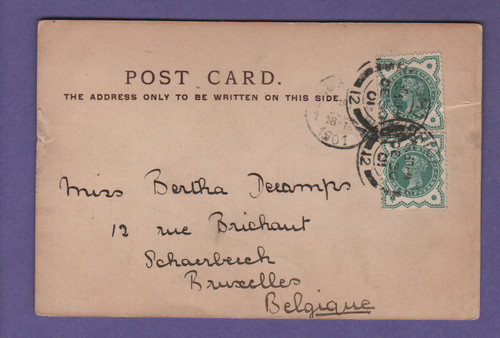 POST CARD.
THE ADDRESS ONLY TO BE WRITTEN ON THIS SIDE.
12
12
18-1
1901
Miss Bertha Decamps
12 rue Brichaut
Schaerbeeck
Bruxelles
Belgique